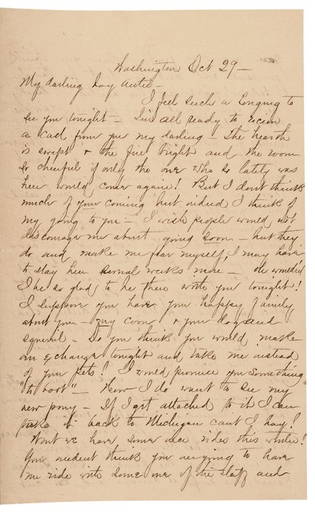 Washington Oct 29 —
My darling boy Autie —
I feel such a longing to
see you tonight — I'm all ready to receive
a call from you my darling — The hearth
is swept & the fire bright and the room
so cheerful if only the one who so lately was
here would come again! But I don't think
much of your coming but indeed I think of
my going to you — I wish people would not
discourage me about going soon — but they
do and make me fear myself I may have
to stay here several weeks more —
I be so glad to be there with you tonight!
I suppose you have your happy family
about you — coon & your dog and
squirrel — Do you think you would make
an exchange tonight and take me instead
of your pets! I would promise you something
"to boot" — How I do want to see my
new pony — If I get attached to it I can
take it back to Michigan can't I hey!
Won't we have some nice rides this winter!
You needent think you are going to have
me ride with some one of the staff and